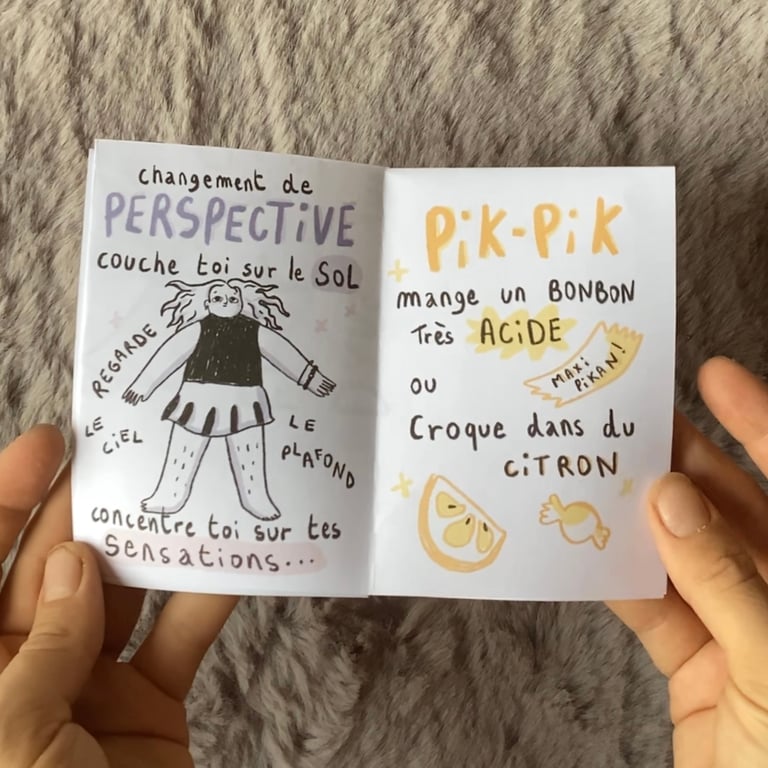 changement de
PERSPECTIVE
couche toi sur le SOL
REGARDE
LE CIEL
LE PLAFOND
concentre toi sur tes
sensations...
PiK-PiK
mange un BONBON
Très ACiDE
MAXi PiKAN!
ou
Croque dans du
CiTRON